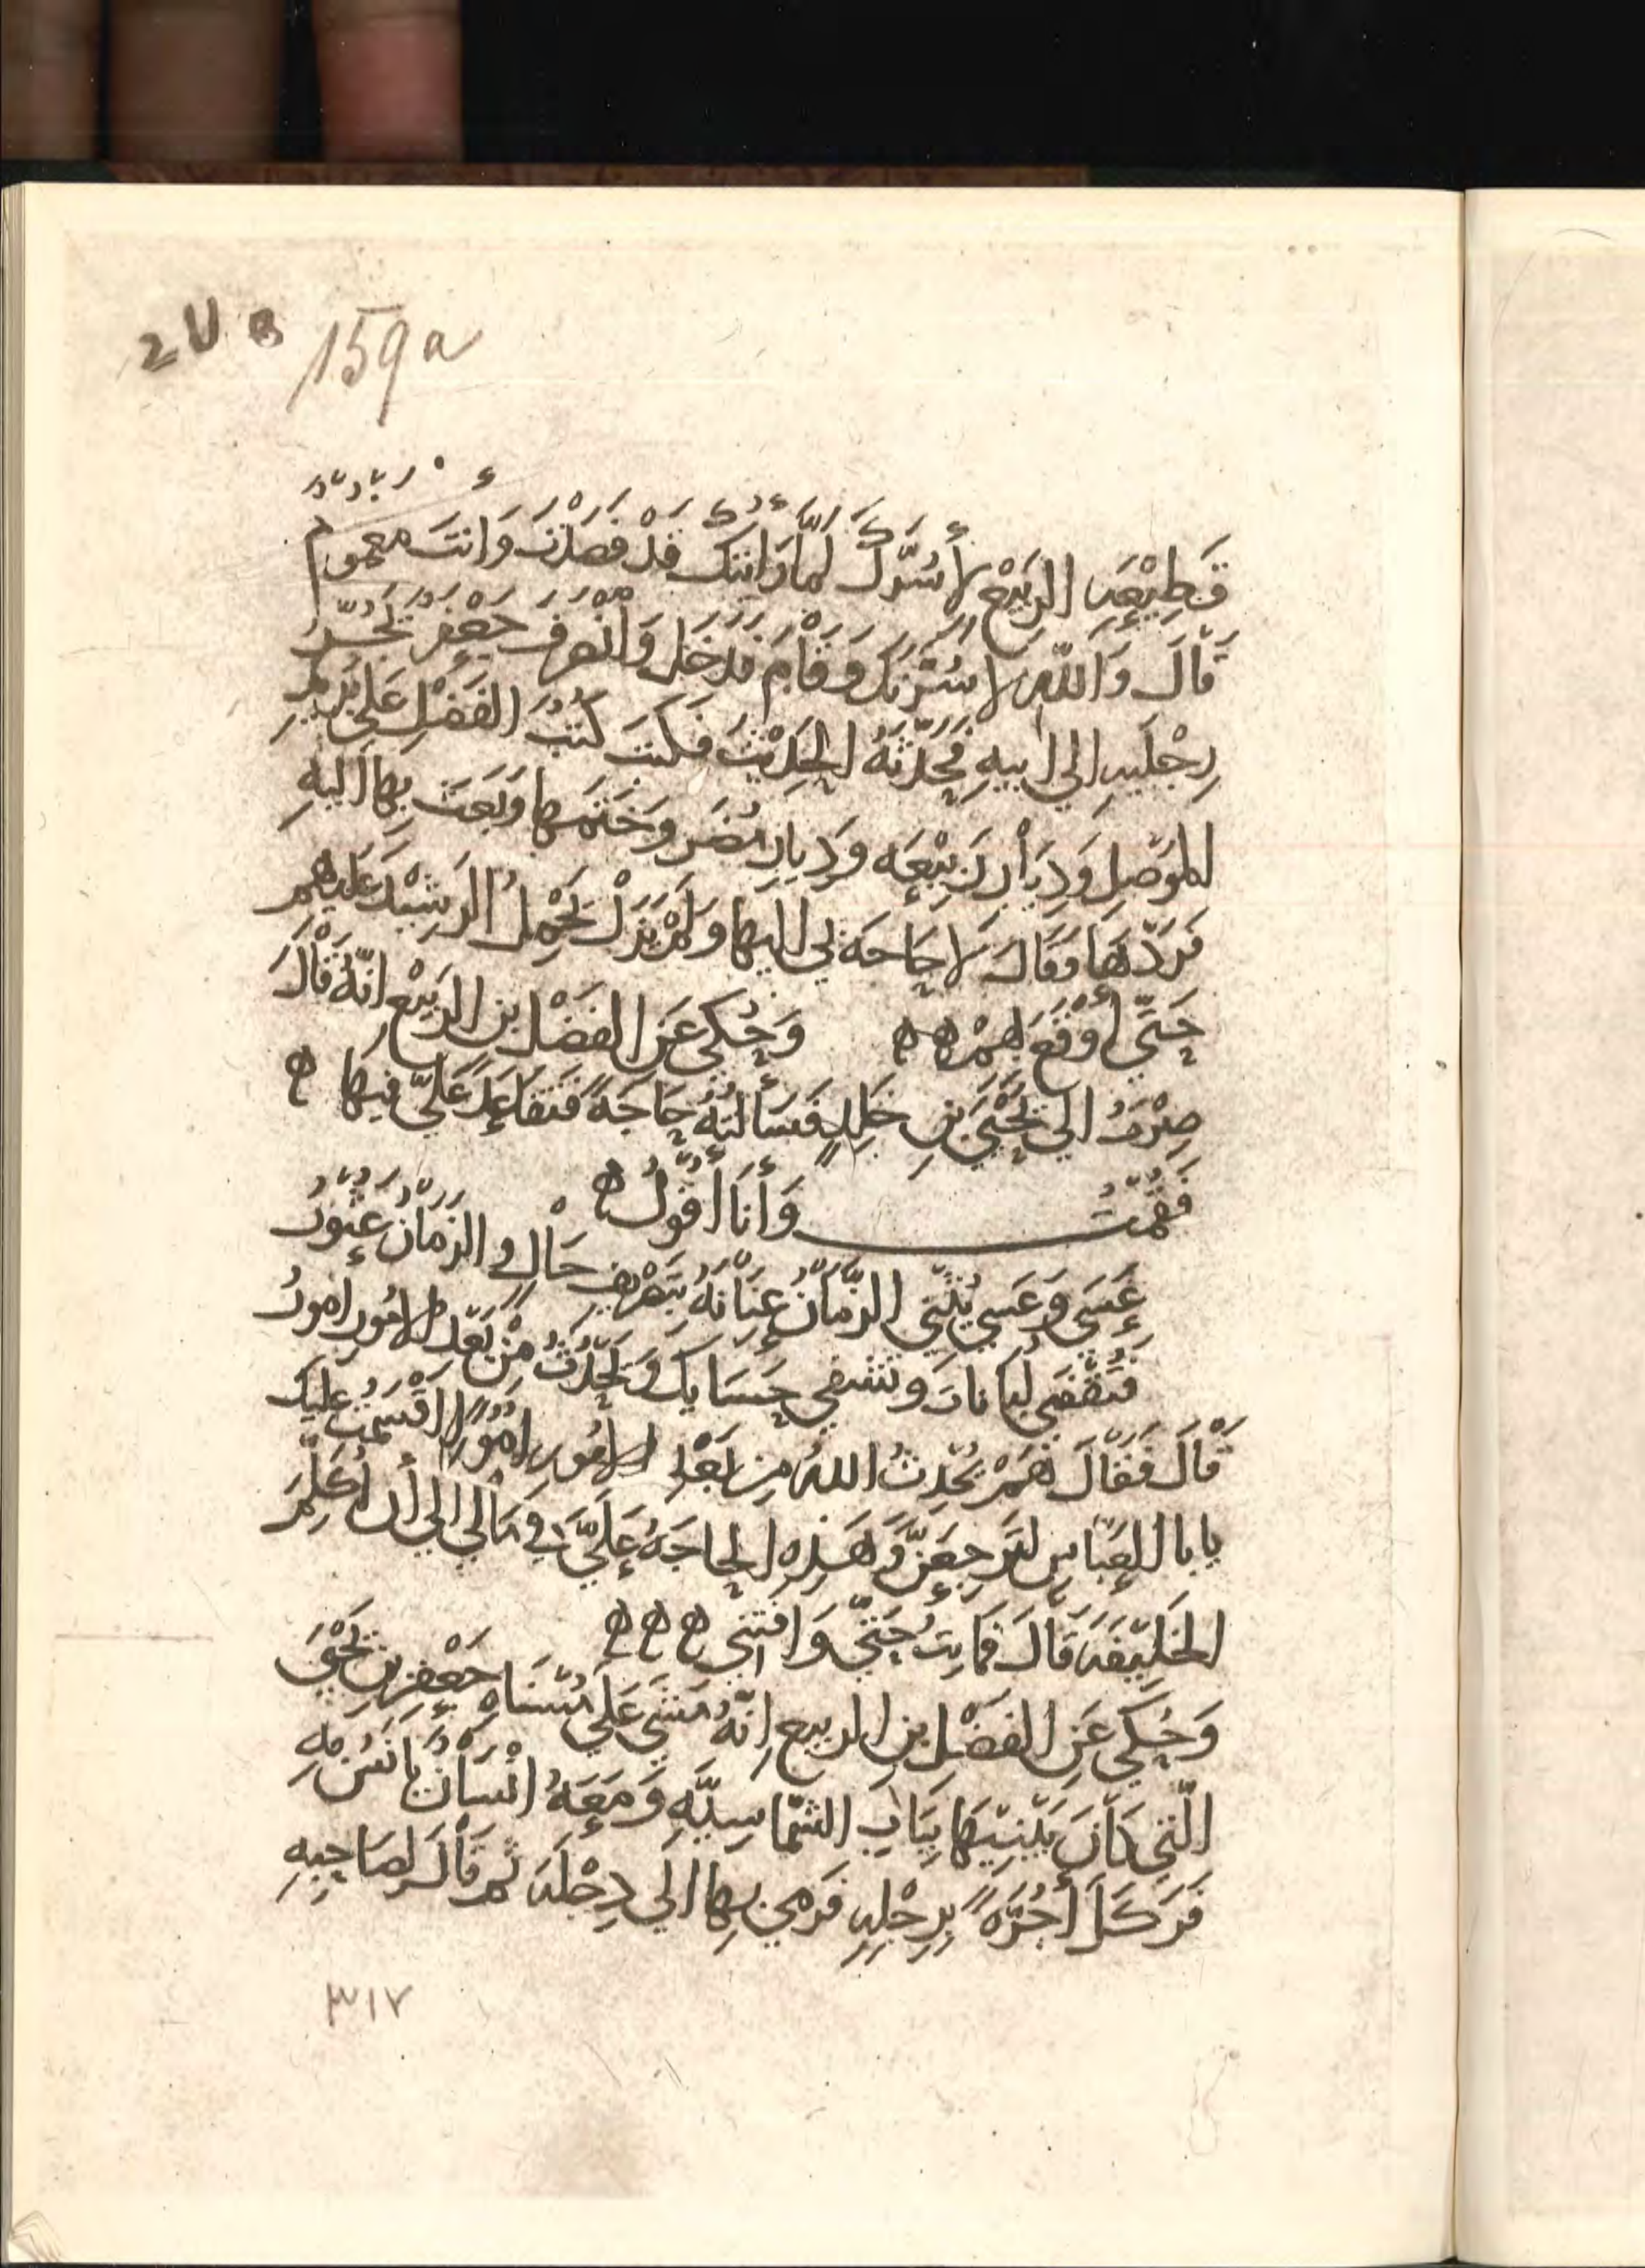 159a
قَطِيْعَهِ الرَبِيْع لأسُرَّكَ لمَّا رَايتكَ قَدْ فَصَلْتَ وَانتَ مَغموم
قَالَ وَاللّهِ لاسُرْرتكَ وَقَامَ فَدَخَلَ وَانْصرفَ جَعْفَرُ يَجُرُّ
رِجْليهِ الي ابيهِ فَحَدّثهُ الحَدِيْثَ فكتبَ كُتُبَ الفَضْلِ عَلي
الموَصِل وَدِيَار رَبيْعَه وَدِيار مُضَر وخَتمها وَبَعث بِها اليهِ
فَردّهَا وَقَالَ لا حَاجَه لِي اليها وَلَمْ يَزَلْ يَحْمِلُ الرَشيْدَ عَليهم
حَتّي أوْقَعَ لهمْ ه ه وَحُكي عَن الفضْل بن الرَبيْع انّهُ قَالَ
صِرْتُ الي يَحْيَي بنِ خَلِدٍ فَسَألتهُ حَاجَةً فَتقَاعَدَ عَليّ فيها ه
فَقُمْتُ وَأنَا أقُولُ ه
عَسَي وَعَسي يُثْنِي الزّمَانُ عِنَانَهُ بتَصْريفِ حَالٍ وَ الزَمَانُ عَثُورُ
فتُقْضَي لُبانات وتشفي حَسَايك وَيَحْدُثُ مِنْ بَعْدِ الامُورِ امورُ
قَالَ فَقَالَ نَعَمْ يُحْدِثُ اللهُ مِن بَعْدِ الامُورِ امُورًا اقْسَمْتُ عليك
يابا العَبّاسِ لتَرجعَنَّ وَهَذِهِ الحاجَهُ عَلَيَّ في مَالي الي أن أُكلِّمَ
الخَلِيْفَه قَالَ فمَا بِتُّ حَتّي وَافتني ه ه ه
وَحُكي عَنِ الفَضْلِ بنِ الربيع اِنّهُ مَشَي عَلَي مُسَنَّاهِ جَعْفرِ بن يَحْيَ
الّتي كَانَ يَبْنيْهَا بِبَابِ الشمّاسِيّهِ وَمَعَهُ انْسَانٌ يانَسُ بهِ
فَرَكَلَ أجُرّهً بِرِجْلِهِ فَرَمي بِها الَي دِجْلهَ ثم قَالَ لصَاحِبِهِ
٣١٧